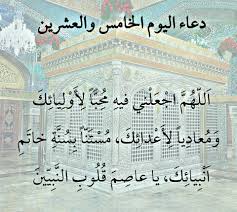 دعاء اليوم الخامس والعشرين
اَللّهُمَّ اجْعَلْني فيهِ مُحِبّاً لِأَوْلِيائِكَ
وَمُعادِياً لِأَعْدائِكَ، مُسْتَنّاً بِسُنَّةِ خاتَمِ
اَنْبِيائِكَ، يا عاصِمَ قُلُوبِ النَّبِيّينَ